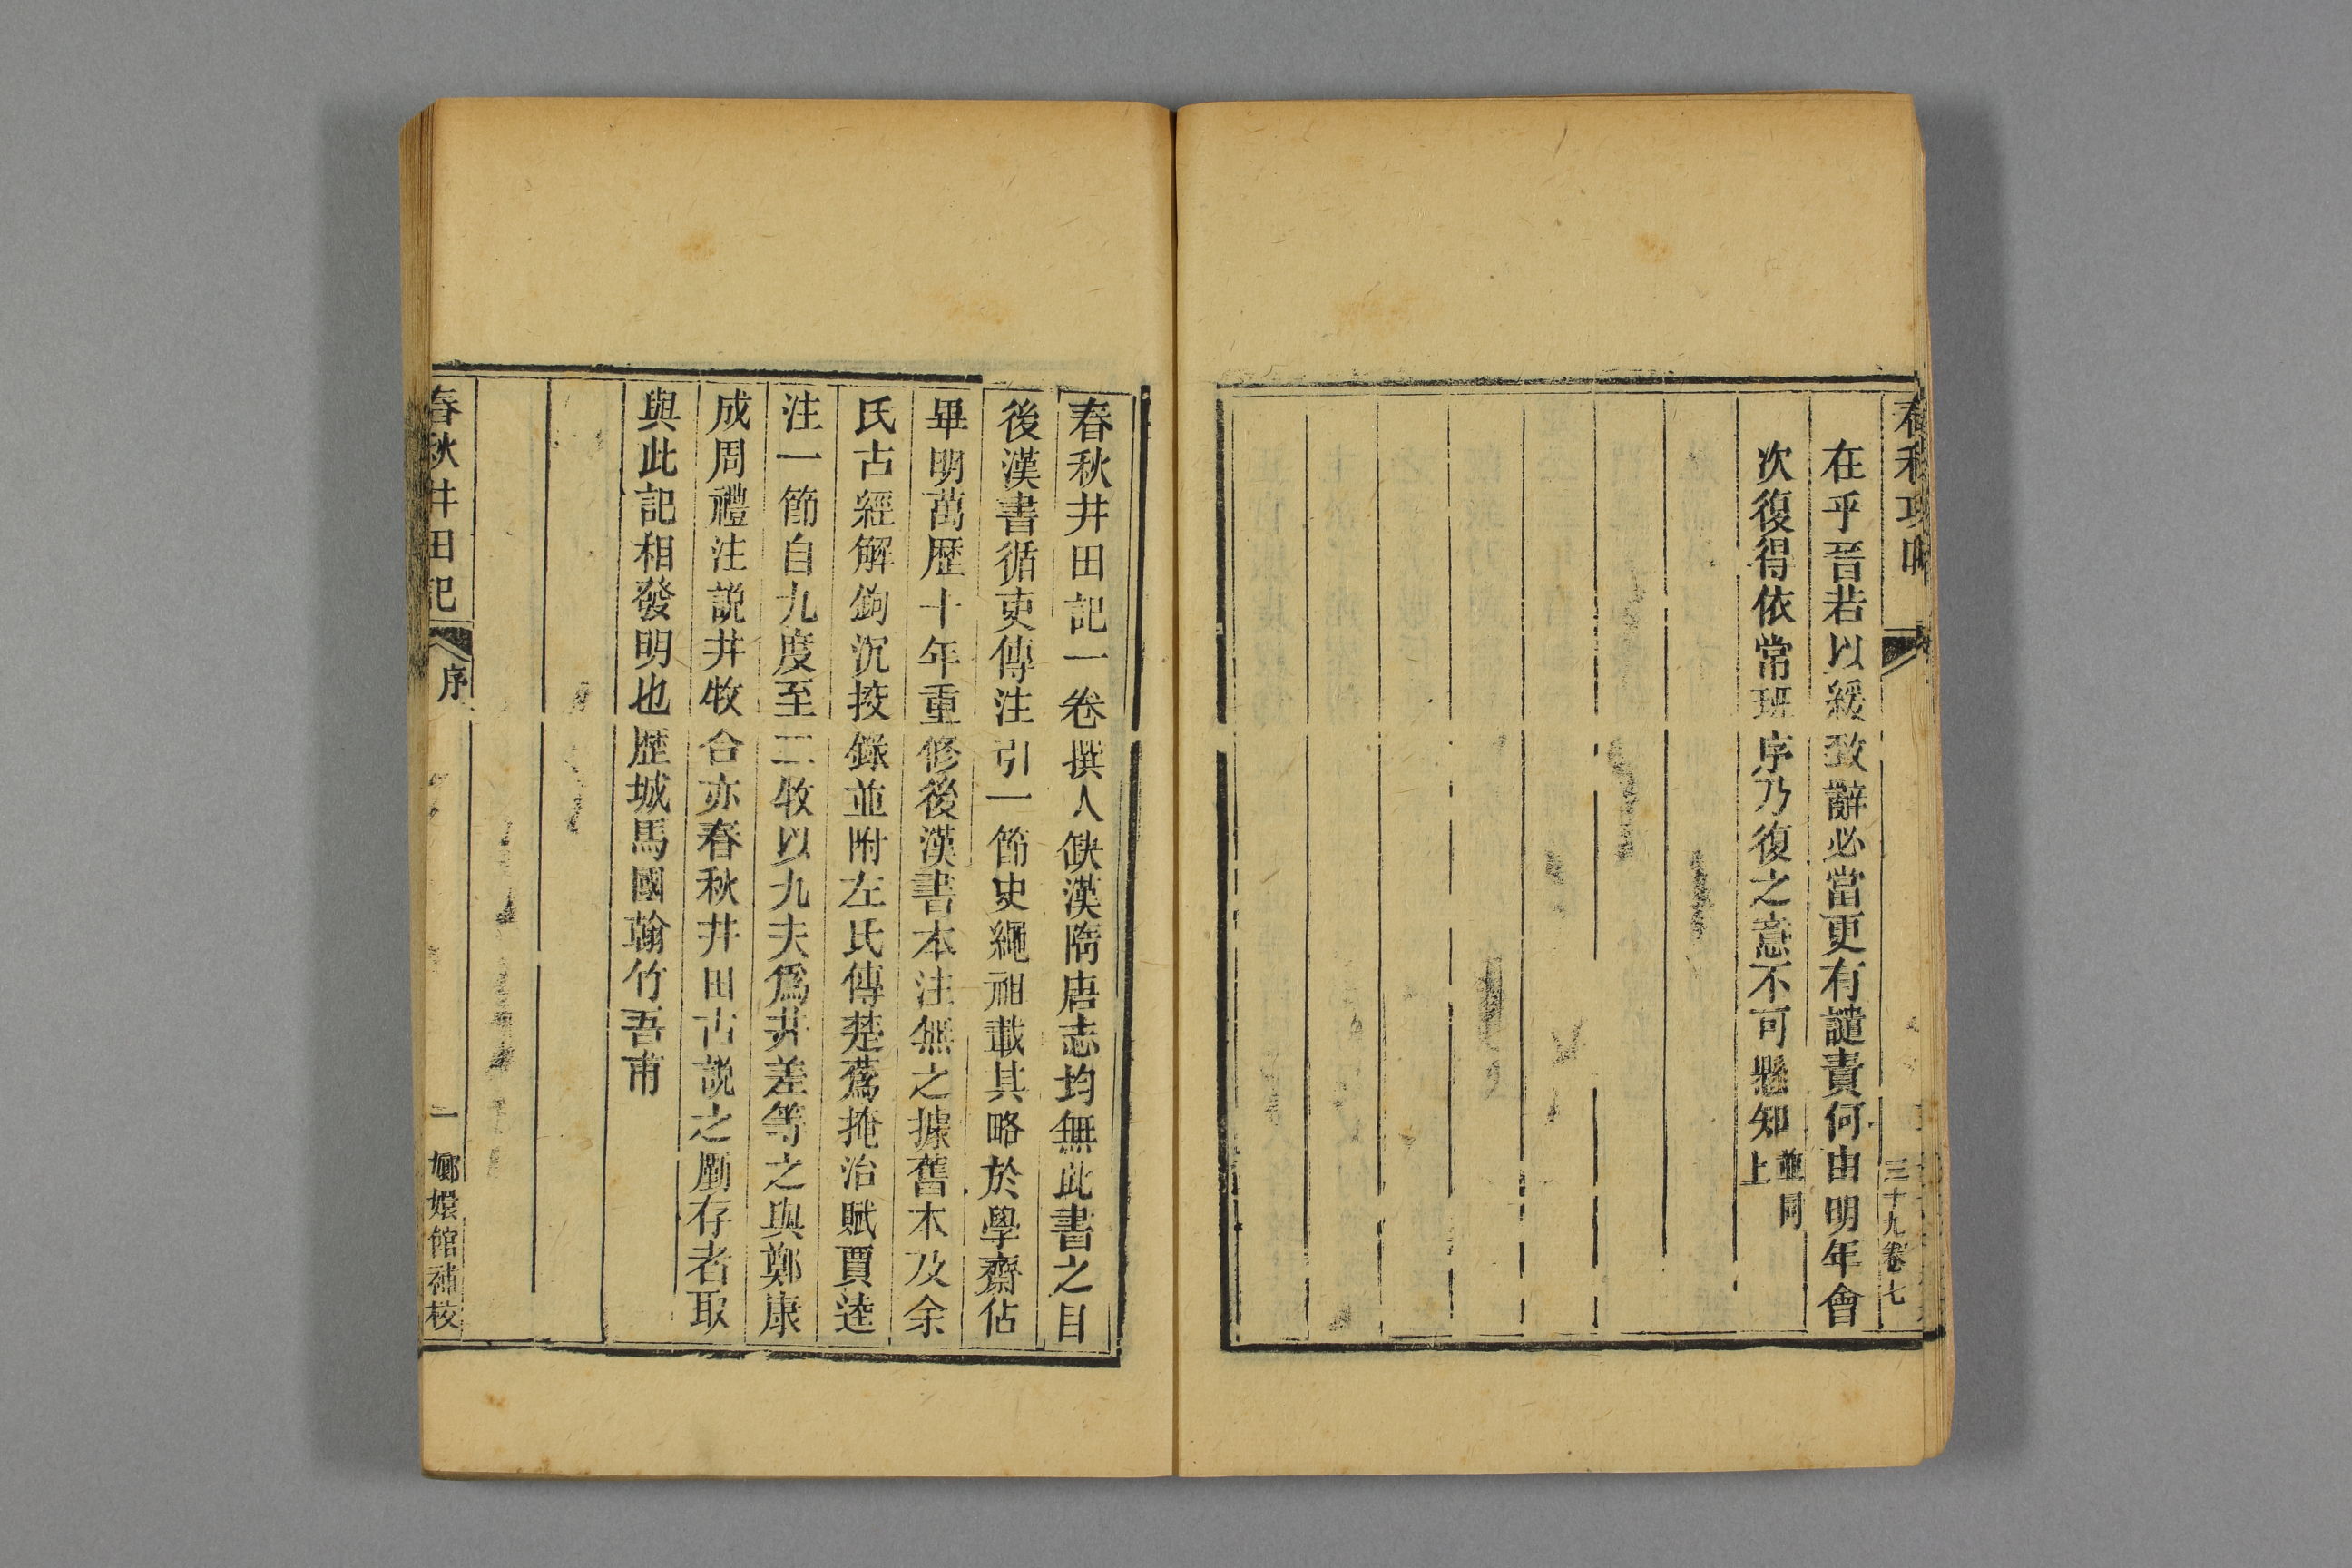 三十九卷七
在乎晉若以緩致辭必當更有譴責何由明年會
次復得依常班序乃復之意不可懸知並同
上
春秋井田記一卷撰人缺漢隋唐志均無此書之目
後漢書循吏傳注引一節史繩祖載其略於學齋佔
畢明萬歷十年重修後漢書本注無之據舊本及余
氏古經解鉤沉挍錄並附左氏傳楚蒍掩治賦賈逵
注一節自九度至二牧以九夫爲井差等之與鄭康
成周禮注說井牧合亦春秋井田古說之廑存者取
與此記相發明也歷城馬國翰竹吾甫
春秋井田記
序
一
嫏嬛館補校